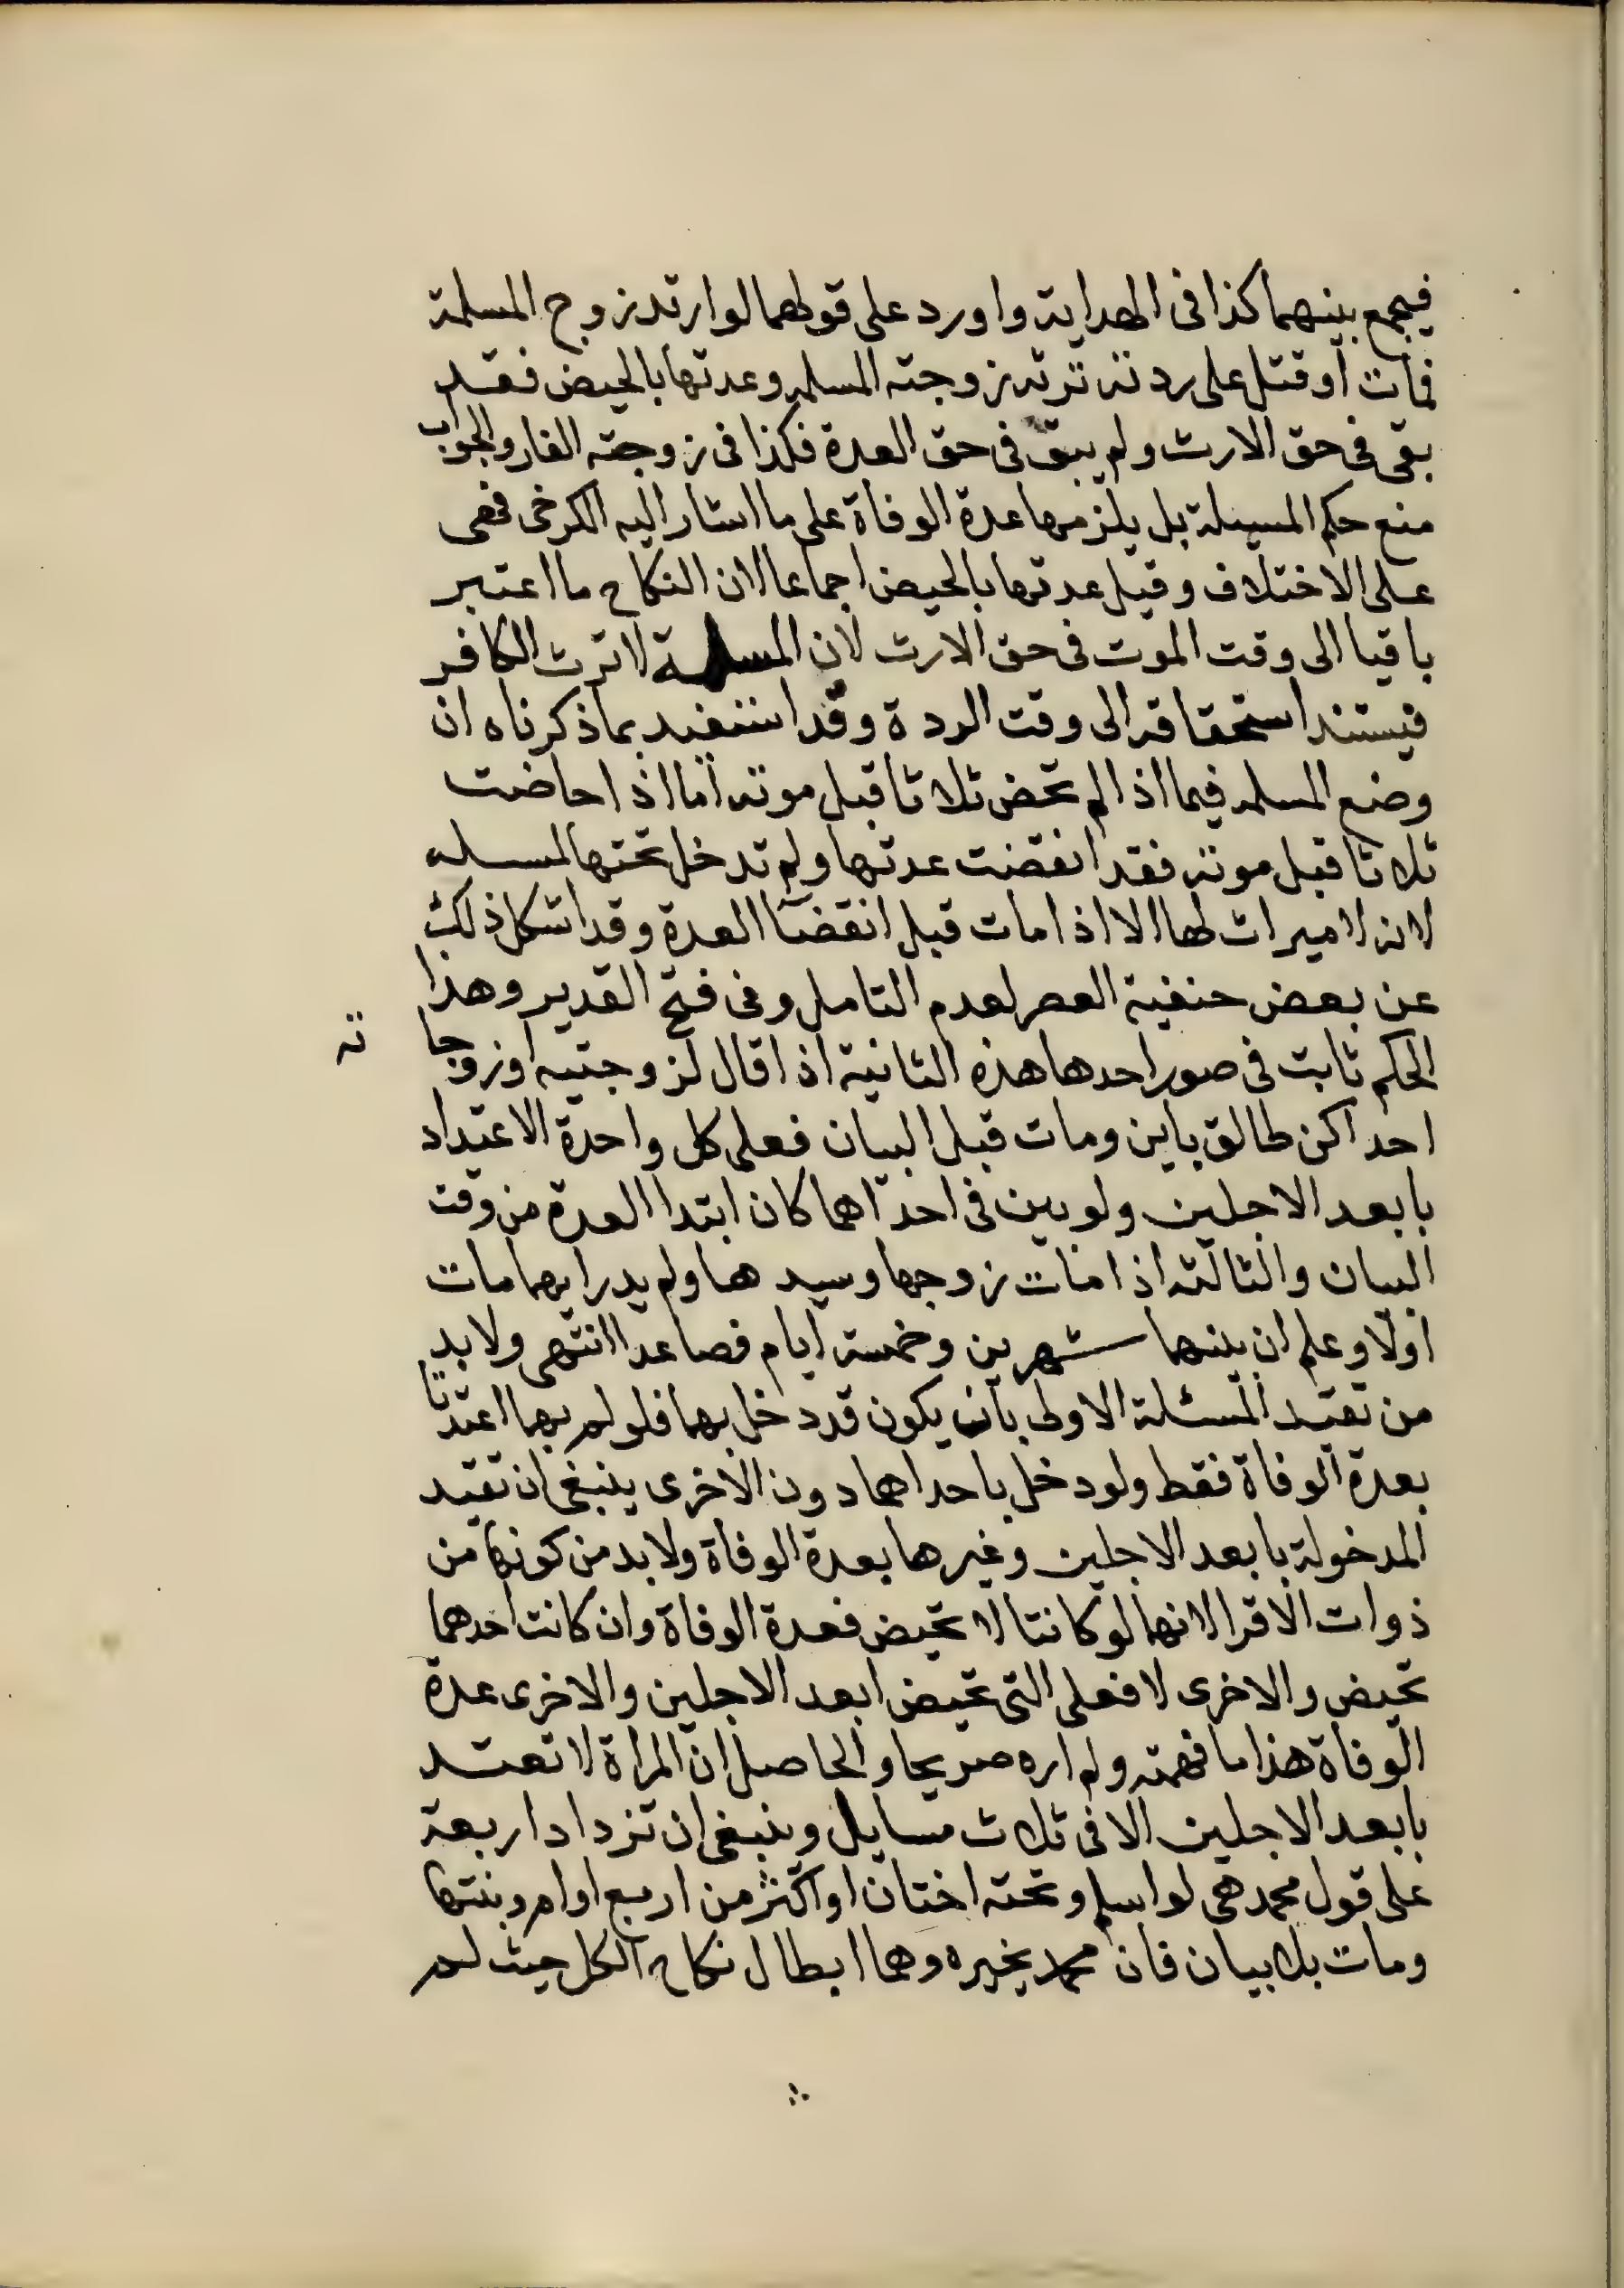 فيجمع بينهما كذا فى الهداية واورد على قولهما لوارتد زوج المسلمة
فمات أوقتل على ردته ترثه زوجته المسلمه وعدتها بالحيض فقد
بقى فى حق الارث ولم يبق فى حق العدة فكذا فى زوجته الفار والجواب
منع حكم المسيلة بل يلزمها عدة الوفاة على ما اشار اليه الكرخى فهى
على الاختلاف وقيل عدتها بالحيض اجماعا لان النكاح ما اعتبر
باقيا الى وقت الموت فى حق الارث لان المسلمة لا ترث الكافر
فيستند استحقاقه الى وقت الردة وقد استفيد بما ذكرناه ان
وضع المسله فيما اذا لم تحض ثلاثا قبل موته أما اذا حاضت
ثلاثا قبل موته فقد انقضت عدتها ولم تدخل تحتها لمسله
لانه لا ميراث لها الا اذا مات قبل انقضآ العدة وقد اشكل ذلك
عن بعض حنفية العصر لعدم التامل وفى فتح القدير وهذا
الحكم ثابت فى صور احدها هذه الثانية اذا قال لزوجتيه اوزوجا
ته
احداكن طالق باين ومات قبل البيان فعلى كل واحدة الاعتداد
بابعد الاجلين ولو بين فى احداهما كان ابتدا العدة من وقت
البيان والثالثه اذا مات زوجها وسيدها ولم يدر ايهما مات
اولا وعلم ان بينهما شهرين وخمسة أيام فصاعدا انتهى ولا بد
من تقيد المسئلة الاولى بان يكون قد دخل بهما فلو لم بهما اعتدتا
بعدة الوفاة فقط ولو دخل باحداهما دون الاخرى ينبغى ان تقيد
المدخولة بابعد الاجلين وغيرها بعدة الوفاة ولا بد من كونها من
ذوات الاقرا لانهما لو كانتا لا تحيض فعدة الوفاة وان كانت احدهما
تحيض والاخرى لا فعلى التى تحيض ابعد الاجلين والاخرى عدة
الوفاة هذا ما فهمته ولم اره صريحا والحاصل ان المراة لا تعتد
بابعد الاجلين الا فى ثلاث مسايل وينبغى ان تزداد اربعة
على قول محمد هى لو اسلم وتحته اختان او اكثر من اربع او ام وبنتها
ومات بلا بيان فان محمد يخيره وهما ابطال نكاح الكل حيث لم